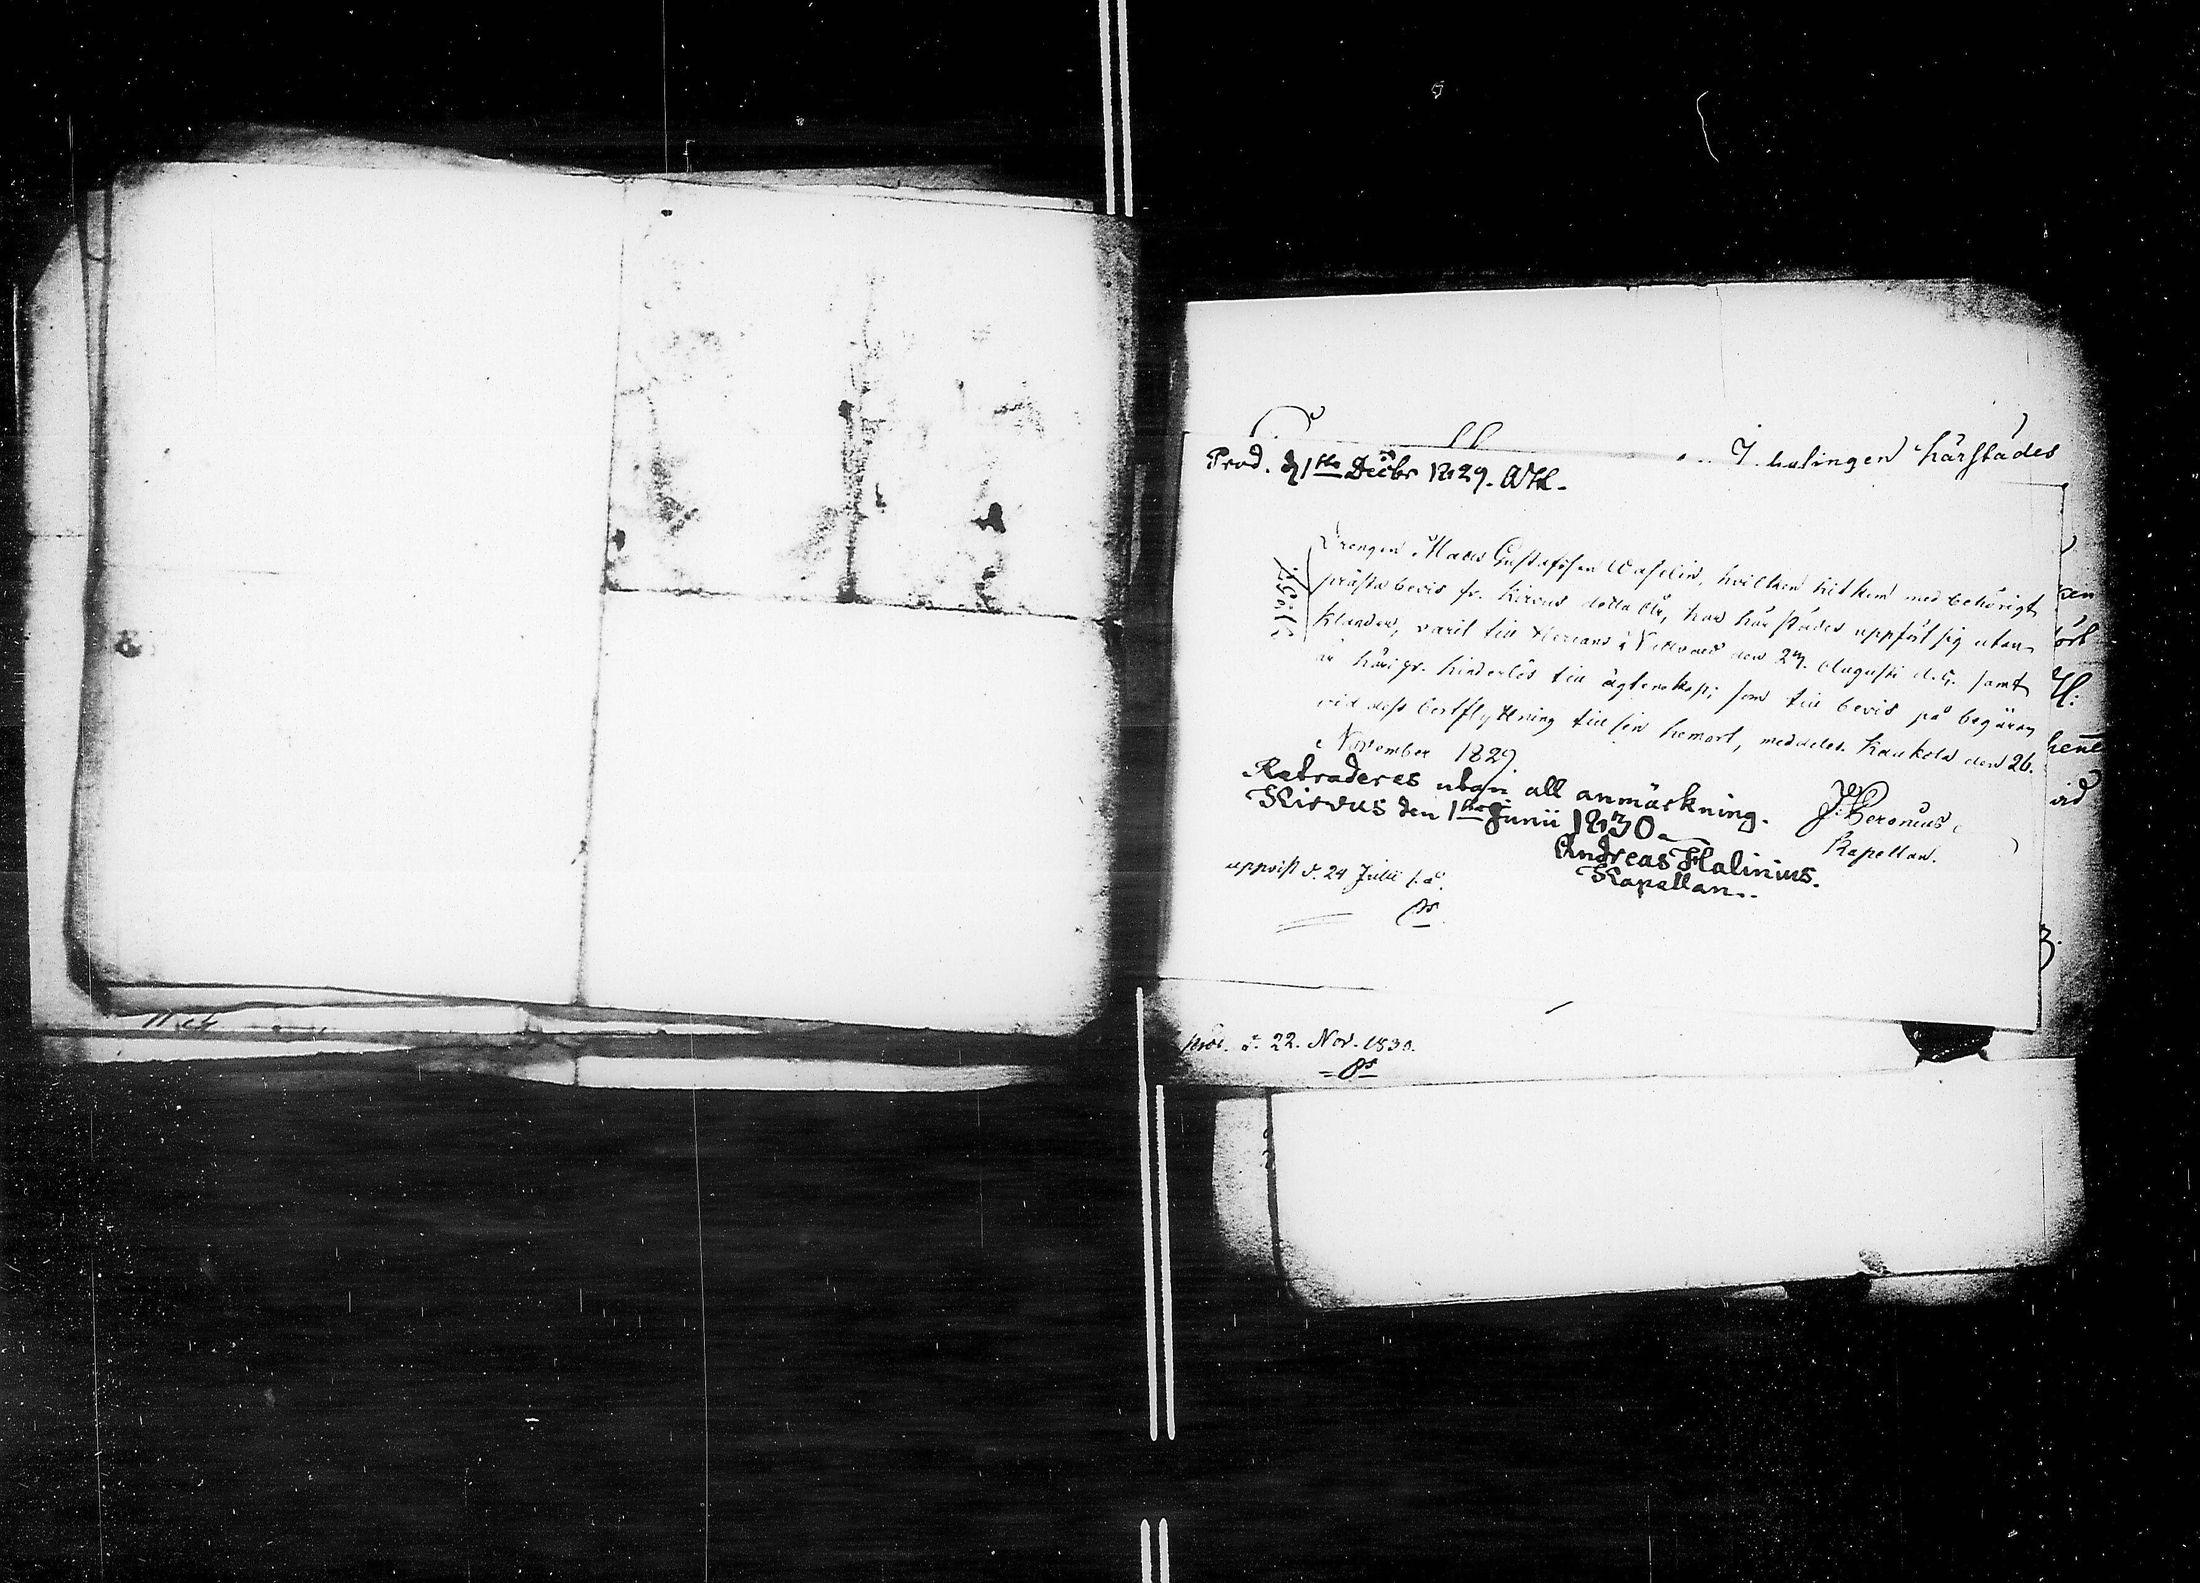 härstades
Prod. d. 1ste Decbr 1829. AH.
No 57.
Drengen Mats Gustafsson Wafelin, hvilken hitkom med behörigt
prästabevis fr. Kirvus detta år, har härstädes uppfört sig utan
klander, varit till Herrans Nattvard den 27. Augusti d. å. samt
är härifr. hinderlös till ägtenskap; som till bevis på begäran
vid dess bortflyttning till sin hemort, meddelas. Kaukola den 26.
November 1829.
J. Heronius
Kapellan.
Retraderes utan all anmärkning.
Kirvus den 1ste Junii 1830.
Andreas Halinius.
Kapellan.
uppvist d. 24 Julii s. å.
d. 22. Nov. 1830.